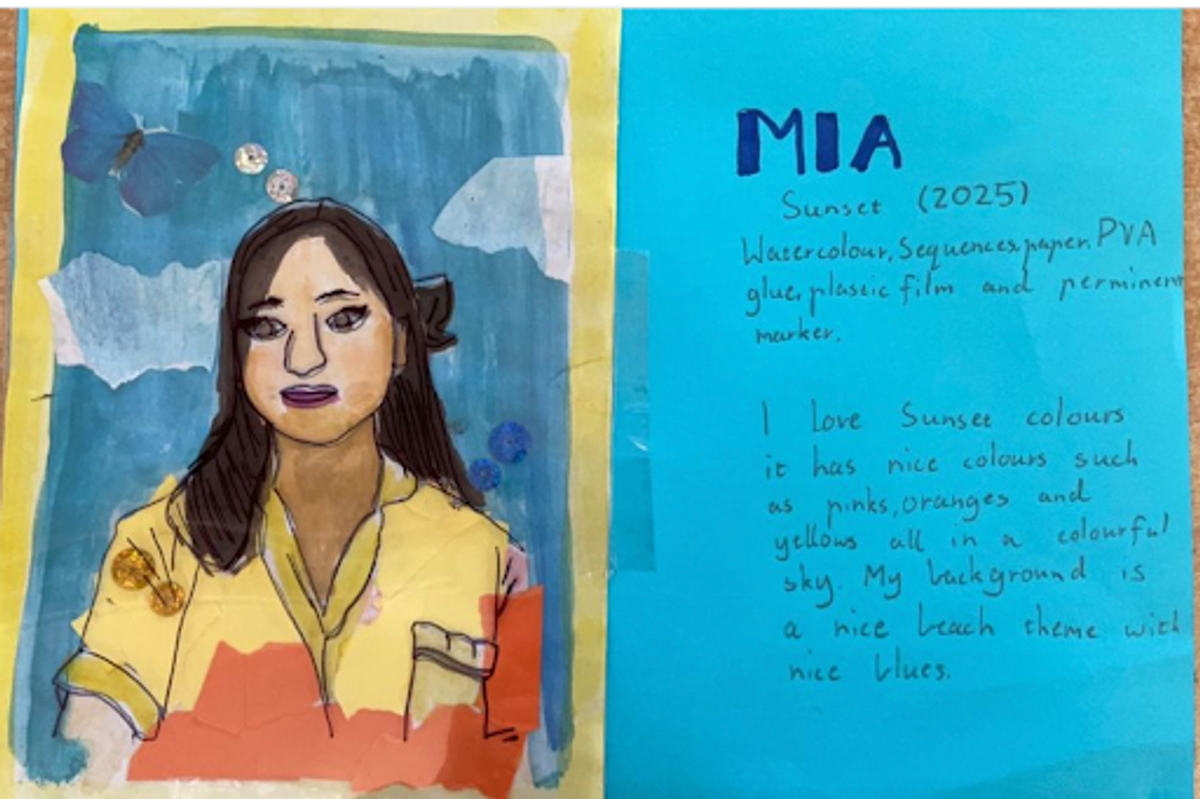 MIA
Sunset (2025)
Watercolour, Sequences, paper, PVA
glue, plastic film and perminent
marker.
I love Sunset colours
it has nice colours such
as pinks, oranges and
yellows all in a colourful
sky. My background is
a nice beach theme with
nice blues.